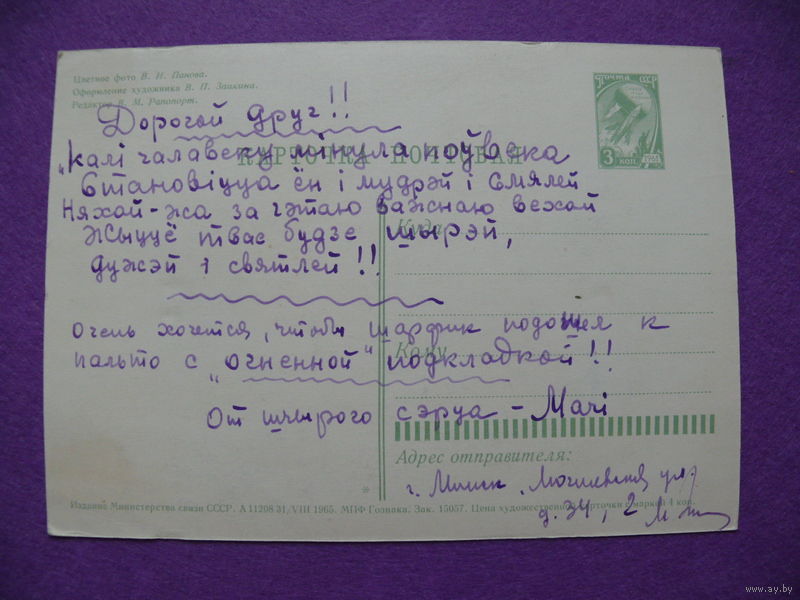 Цветное фото В. И. Панова.
Оформление художника В. П. Заикина.
Редактор В. М. Рапопорт.
ПОЧТА СССР
3 КОП.
КАРТОЧКА ПОЧТОВАЯ
Дорогой друг!!
"Калі чалавеку мінула поўвека
Становіцца ён і мудрэй і смялей
Няхай-жа за гэтаю важнаю вехай
Жыццё твае будзе шчырэй,
дужэй і святлей!!
Куда
Очень хочется, чтобы шарфик подошел к
пальто с "огненной" подкладкой!!
Кому
От шчырого сэрца - Магі
Адрес отправителя:
г. Минск, Могилевская ул,
д. 34, 2
Издание Министерства связи СССР. А 11208 31, VIII 1965. МПФ Гознака. Зак. 15057. Цена художественной карточки с маркой 4 коп.
www.ay.by